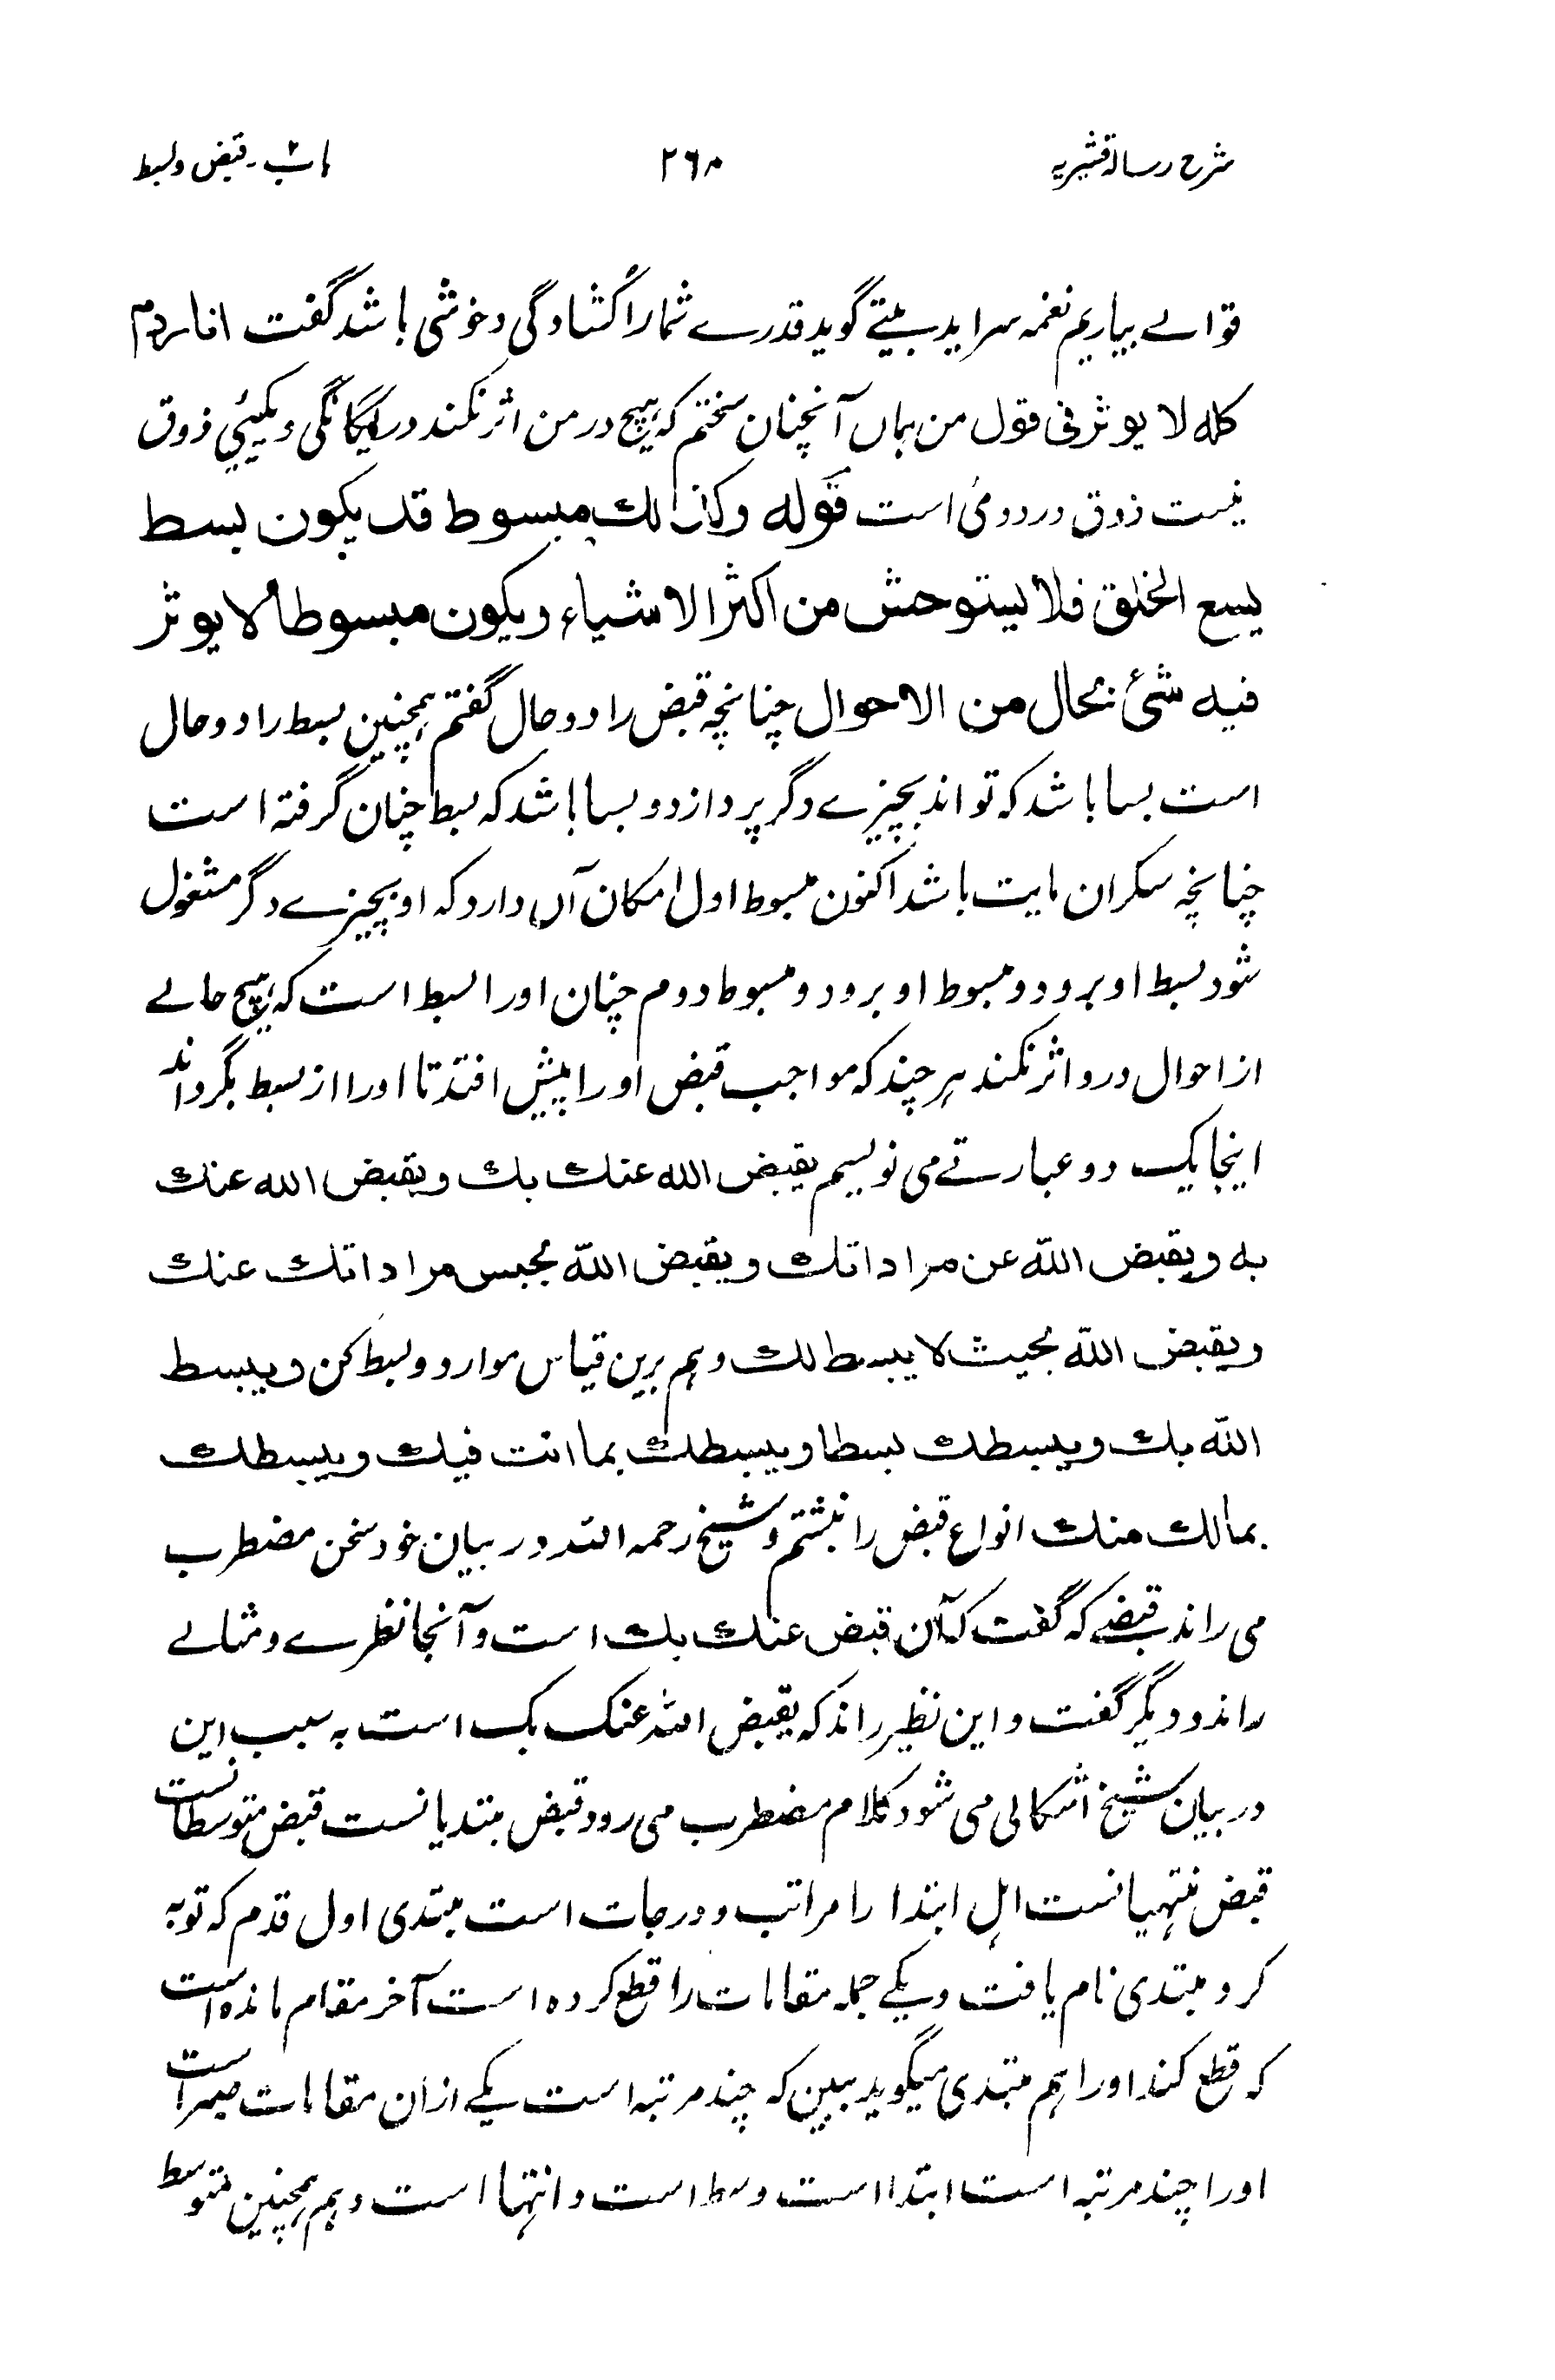 شرح رسالہ قشیریہ ۲۶۸ باب ۲- قبض و بسط
قوالے بیاریم نغمہ سراید بیتے گوید قدرے شما را کشادگی و خوشی باشد گفت انا ردم
کلہ لا یوثر فی قول من بہاں آنچنان سختم کہ ہیچ در من اثر نکند در یگانگی و یکیئی ذوق
نیست ذوق در دومی است قولہ وکذالك مبسوط قد یکون بسط
یسع الخلق فلا یستوحش من اکثر الاشیاء ویکون مبسوطاً لا یوثر
فیہ شیٔ بحال من الاحوال چنانچہ قبض را دو حال گفتم ہمچنین بسط را دو حال
است بسا باشد کہ تواند بچیزے دگر پردازد و بسا باشد کہ بسط چنان گرفتہ است
چنانچہ سکران مایت باشد اکنون مبسوط اول امکان آں دارد کہ او بچیزے دگر مشغول
شود بسط او برود و مبسوط او برود و مبسوط دوم چنان اورا بسط است کہ ہیچ حالے
از احوال درو اثر نکند ہر چند کہ مواجب قبض اورا پیش افتد تا اورا از بسط بگرداند
اینجا یک دو عبارتے می نویسم یقبض اللہ عنك بك ویقبض اللہ عنك
بہ ویقبض اللہ عن مراداتك ویقبض اللہ بحبس مراداتك عنك
ویقبض اللہ بحیث لا یبسط لك و ہم برین قیاس موارد و بسط کن ویبسط
اللہ بك ویبسطك بسطا ویبسطك بما انت فیك ویبسطك
بمالك منك انواع قبض را نبشتم و شیخ رحمہ اللہ در بیان خود سخن مضطرب
می راند قبضے کہ گفت کہ آن قبض عنك بك است و آنجا نظرے و مثالے
راند و دیگر گفت و این نظیر راند کہ یقبض اللہ عنک بک است بہ سبب این
در بیان شیخ اشکالی می شود کلام مضطرب می رود قبض مبتدیانست قبض متوسطانست
قبض منتہیانست اہل ابتدا را مراتب و درجات است مبتدی اول قدم کہ توبہ
کرد مبتدی نام یافت و یکے جملہ مقامات را قطع کردہ است آخر مقام ماندہ است
کہ قطع کند اورا ہم مبتدی میگوید ببین کہ چند مرتبہ است یکے ازان مقامات صبر است
اورا چند مرتبہ است ابتدا است وسط است و انتہا است و ہم ہمچنین متوسط